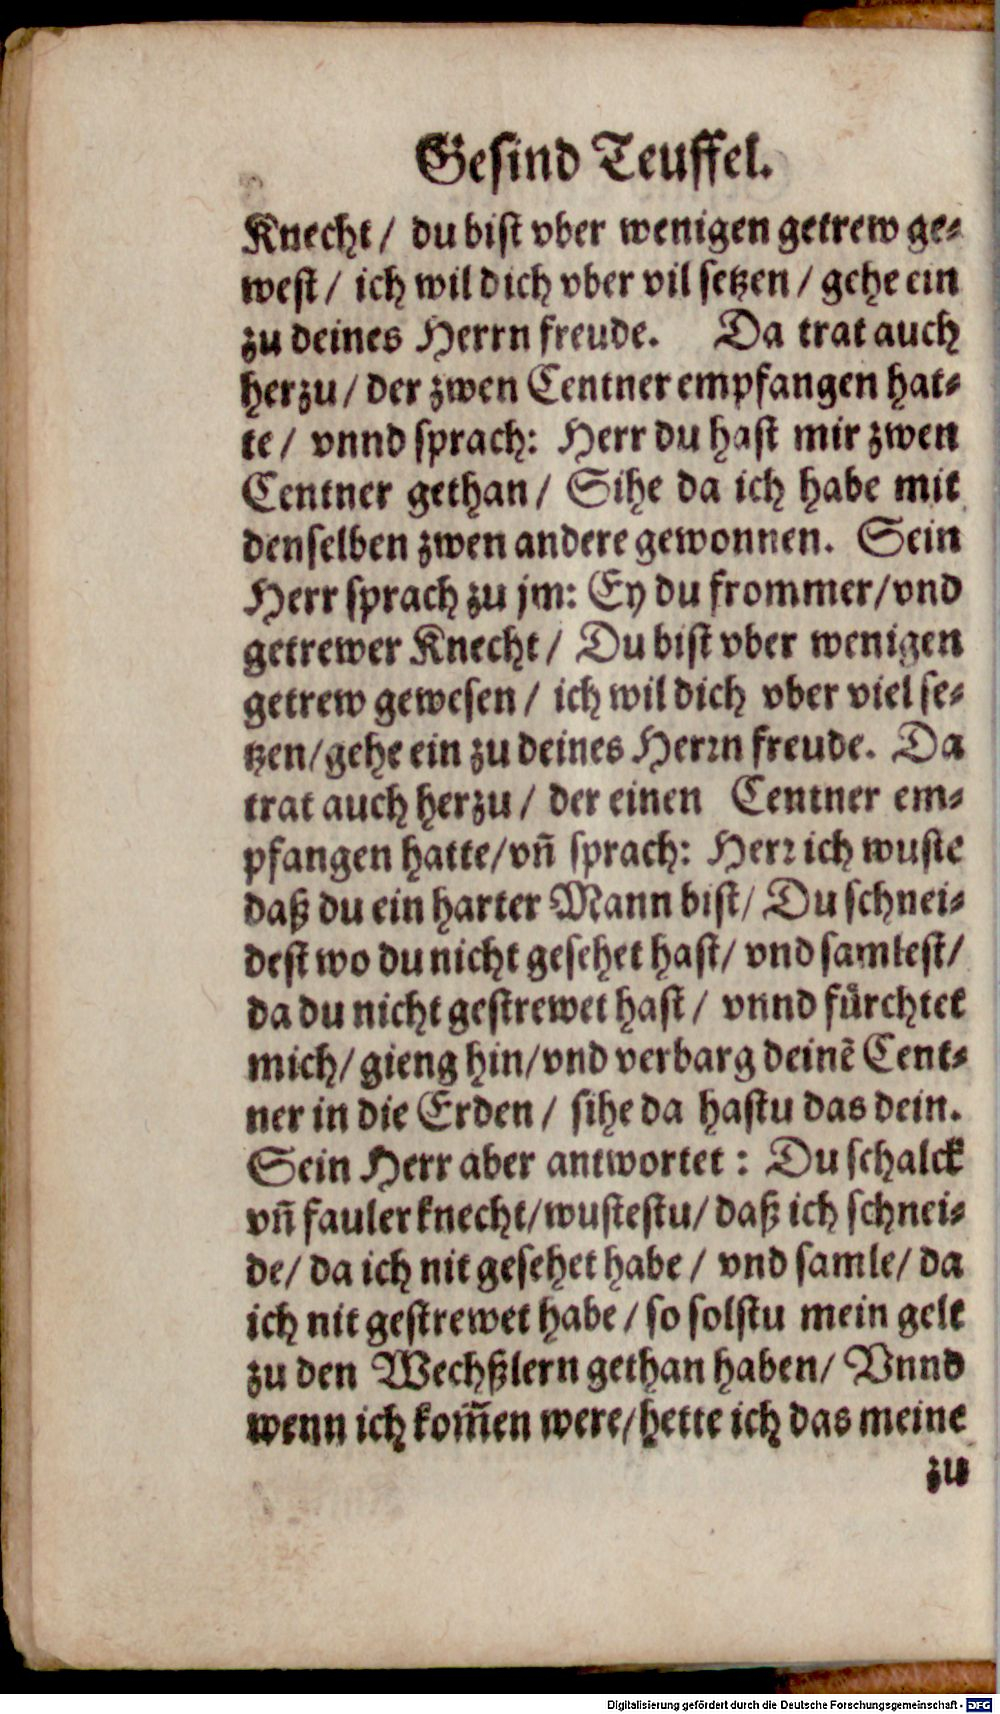 Gesind Teuffel.
Knecht / du bist vber wenigen getrew ge-
west / ich wil dich vber vil setzen / gehe ein
zu deines Herrn freude. Da trat auch
herzu / der zwen Centner empfangen hat-
te / vnnd sprach: Herr du hast mir zwen
Centner gethan / Sihe da ich habe mit
denselben zwen andere gewonnen. Sein
Herr sprach zu jm: Ey du frommer / vnd
getrewer Knecht / Du bist vber wenigen
getrew gewesen / ich wil dich vber viel se-
tzen / gehe ein zu deines Herrn freude. Da
trat auch herzu / der einen Centner em-
pfangen hatte / vñ sprach: Herr ich wuste
daß du ein harter Mann bist / Du schnei-
dest wo du nicht gesehet hast / vnd samlest /
da du nicht gestrewet hast / vnnd fürchtet
mich / gieng hin / vnd verbarg deinẽ Cent-
ner in die Erden / sihe da hastu das dein.
Sein Herr aber antwortet : Du schalck
vñ fauler knecht / wustestu / daß ich schnei-
de / da ich nit gesehet habe / vnd samle / da
ich nit gestrewet habe / so solstu mein gelt
zu den Wechßlern gethan haben / Vnnd
wenn ich kom̃en were / hette ich das meine
zu
Digitalisierung gefördert durch die Deutsche Forschungsgemeinschaft - DFG